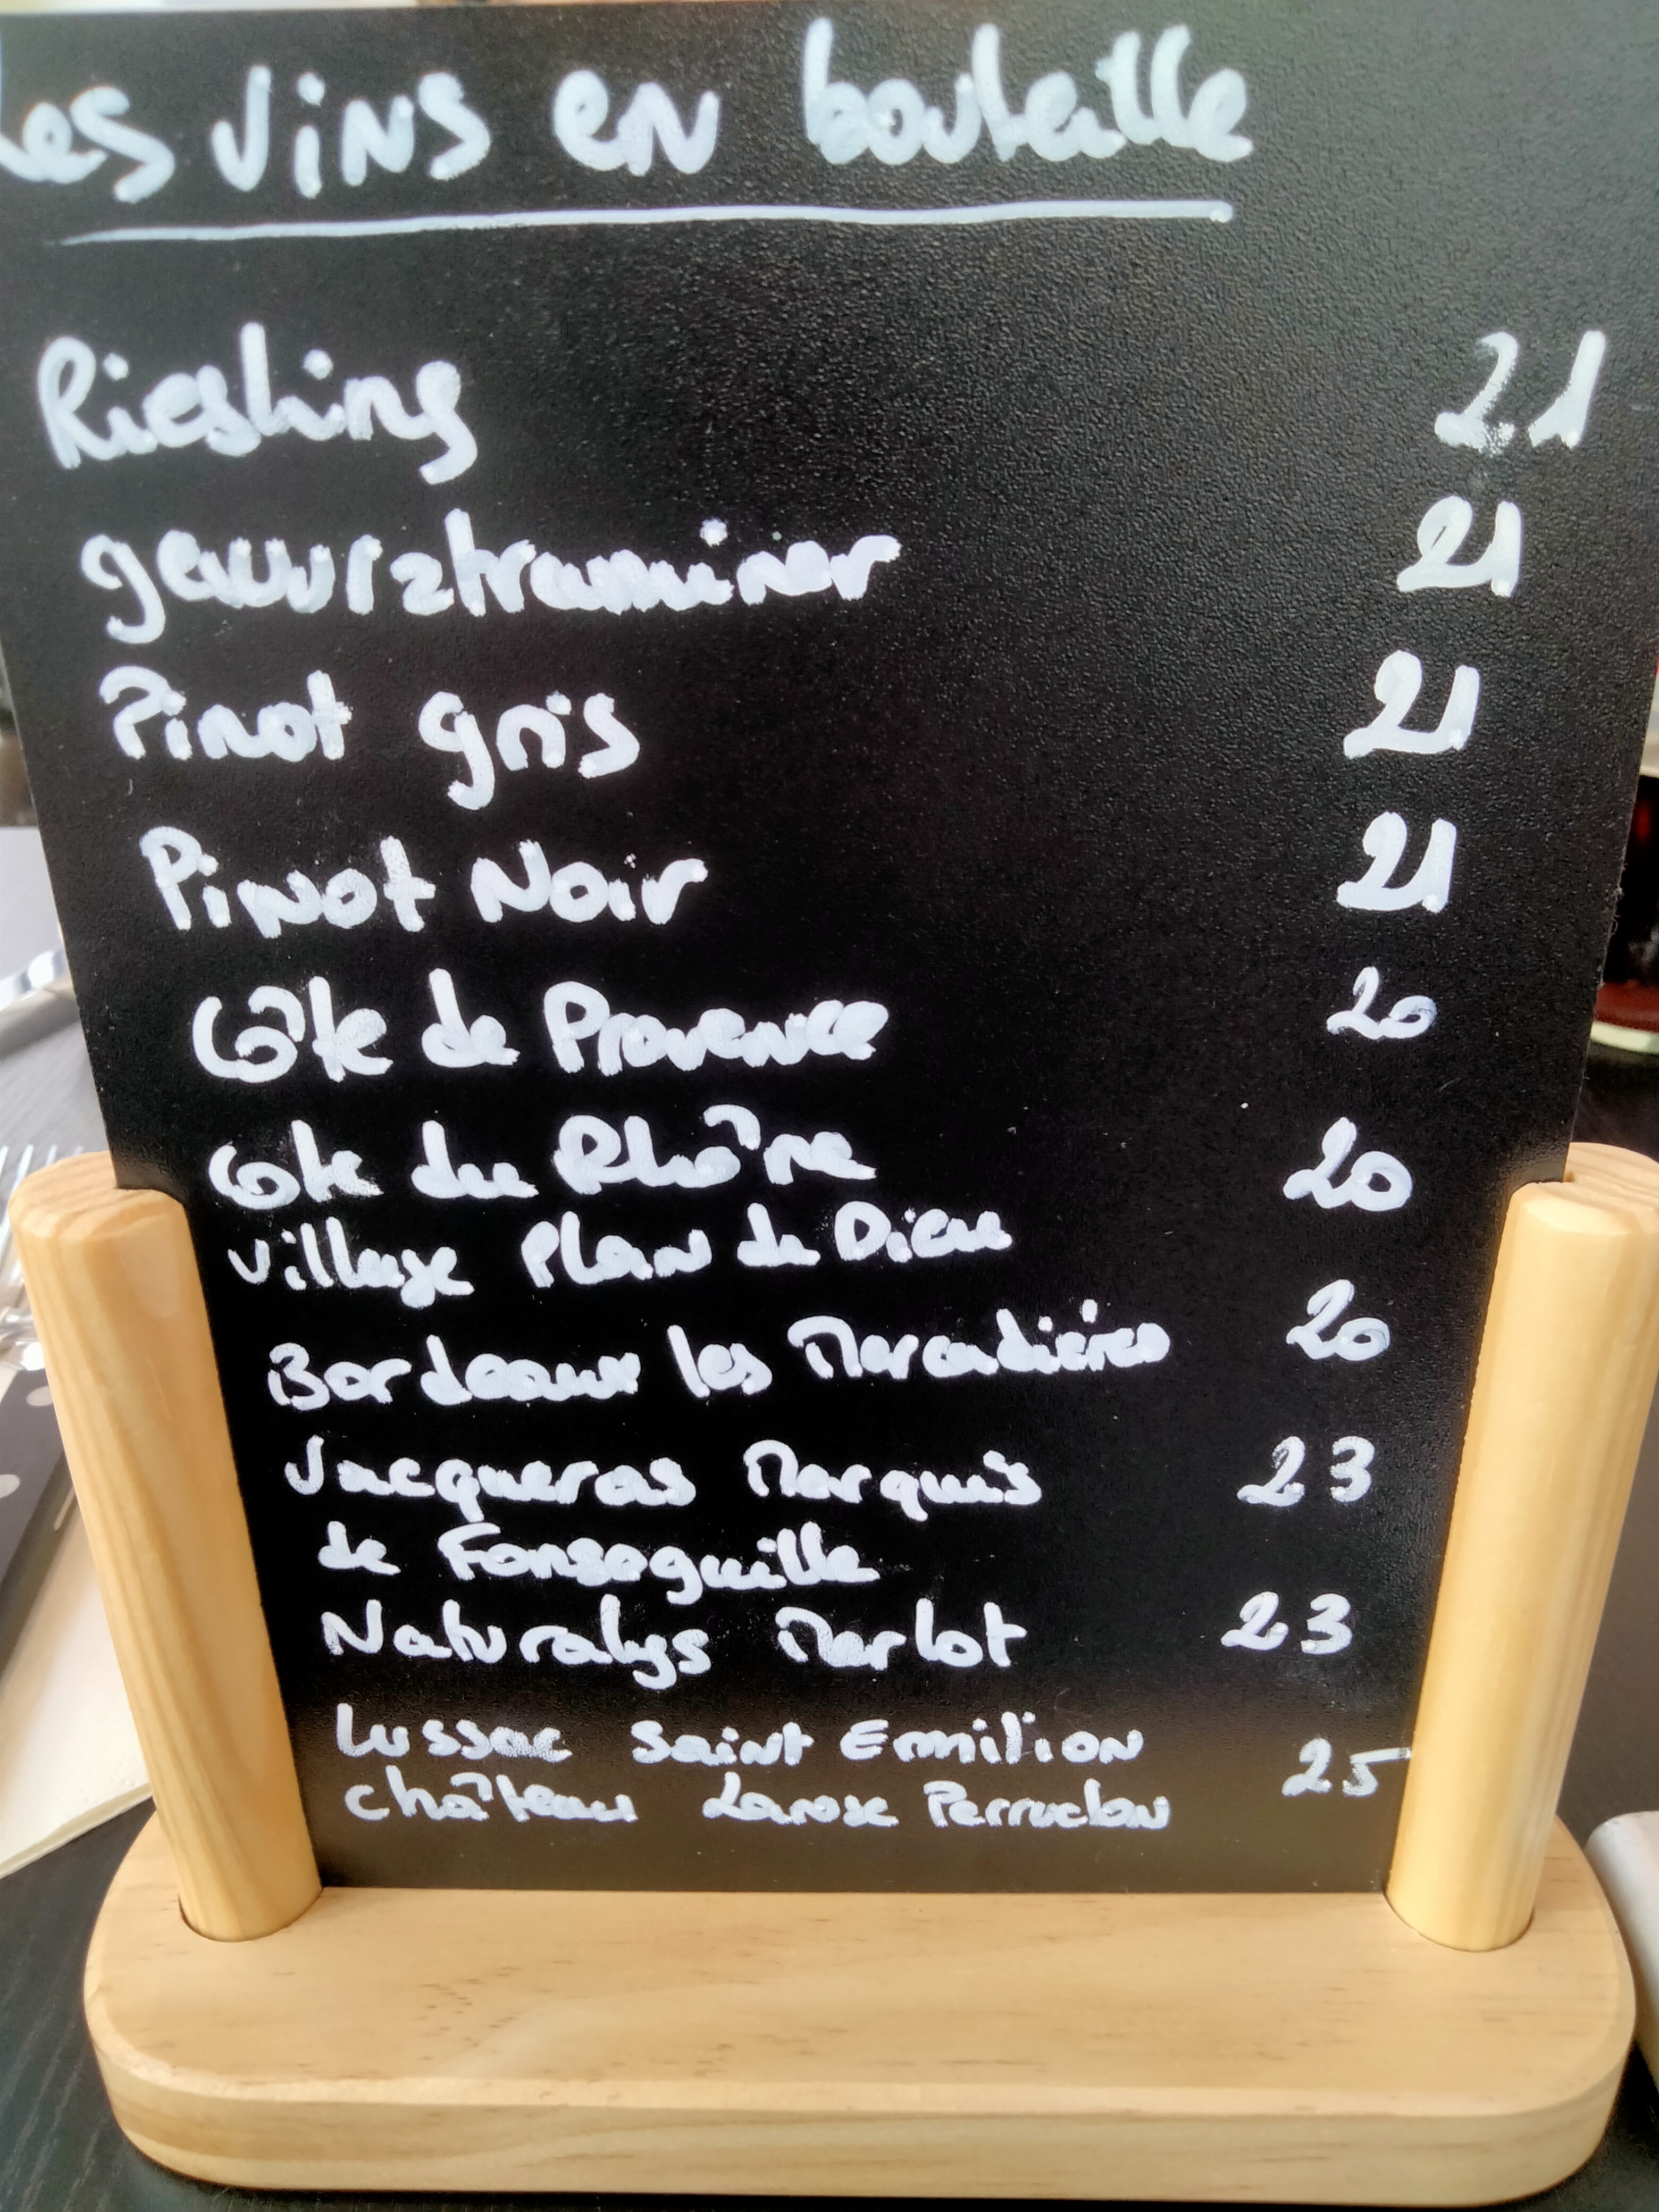 Les vins en bouteille
Riesling 21
gewurztraminer 21
Pinot gris 21
Pinot Noir 21
Côte de Provence 20
Côte du Rhône 20
Village Plan de Dieu
Bordeaux les Mercadières 20
Vacqueras Marquis 23
de Fonseguille
Naturalys Merlot 23
Lussac Saint Emilion
château Larose Perruchon 25